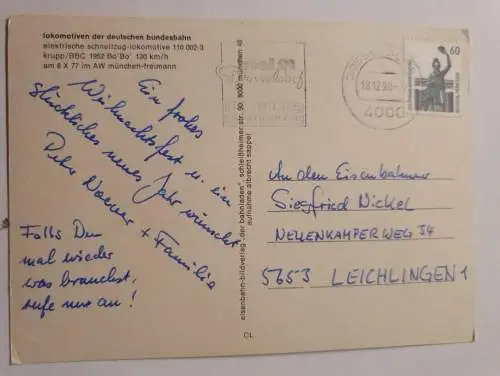 lokomotiven der deutschen bundesbahn
elektrische schnellzug-lokomotive 110 002-3
krupp/BBC 1952 Bo'Bo' 130 km/h
am 8 X 77 im AW münchen-freimann
Ein frohes
Weihnachtsfest u. ein
glückliches neues Jahr wünscht
Dein Werner + Familie
Falls Du
mal wieder
was brauchst,
rufe nur an!
eisenbahn-bildverlag "der bahnladen", schleißheimer str. 90, 8000 münchen 40
aufnahme albrecht sappel
CL.
18.12.90
4000
60
An den Eisenbahner
Siegfried Nickel
NEUENKAMPER WEG 34
5653 LEICHLINGEN 1